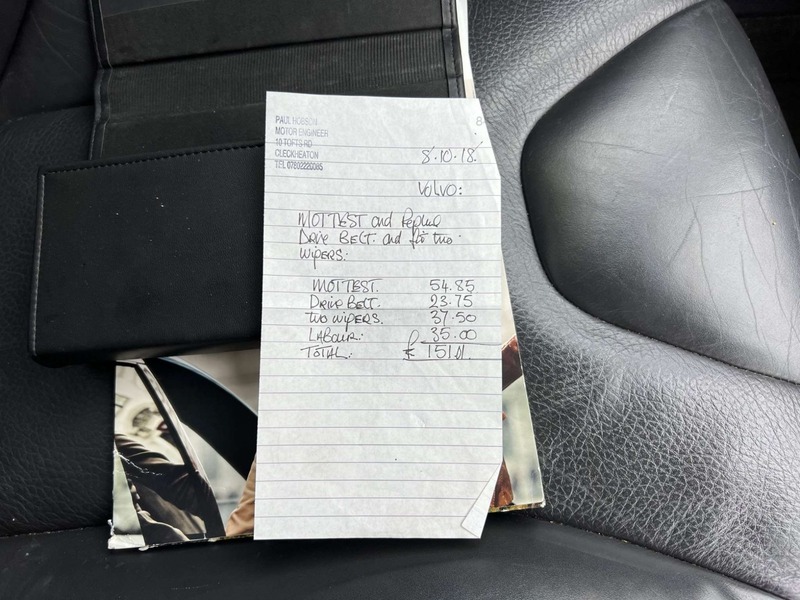 PAUL HOBSON
MOTOR ENGINEER
10 TOFTS RD
CLECKHEATON
TEL 07802220085
8
8.10.18.
VOLVO:
MOT TEST and Replace
DRIVE BELT. and fit two
WIPERS:
MOT TEST. 54.85
DRIVE BELT. 23.75
TWO WIPERS. 37.50
LABOUR: 35.00
TOTAL: £